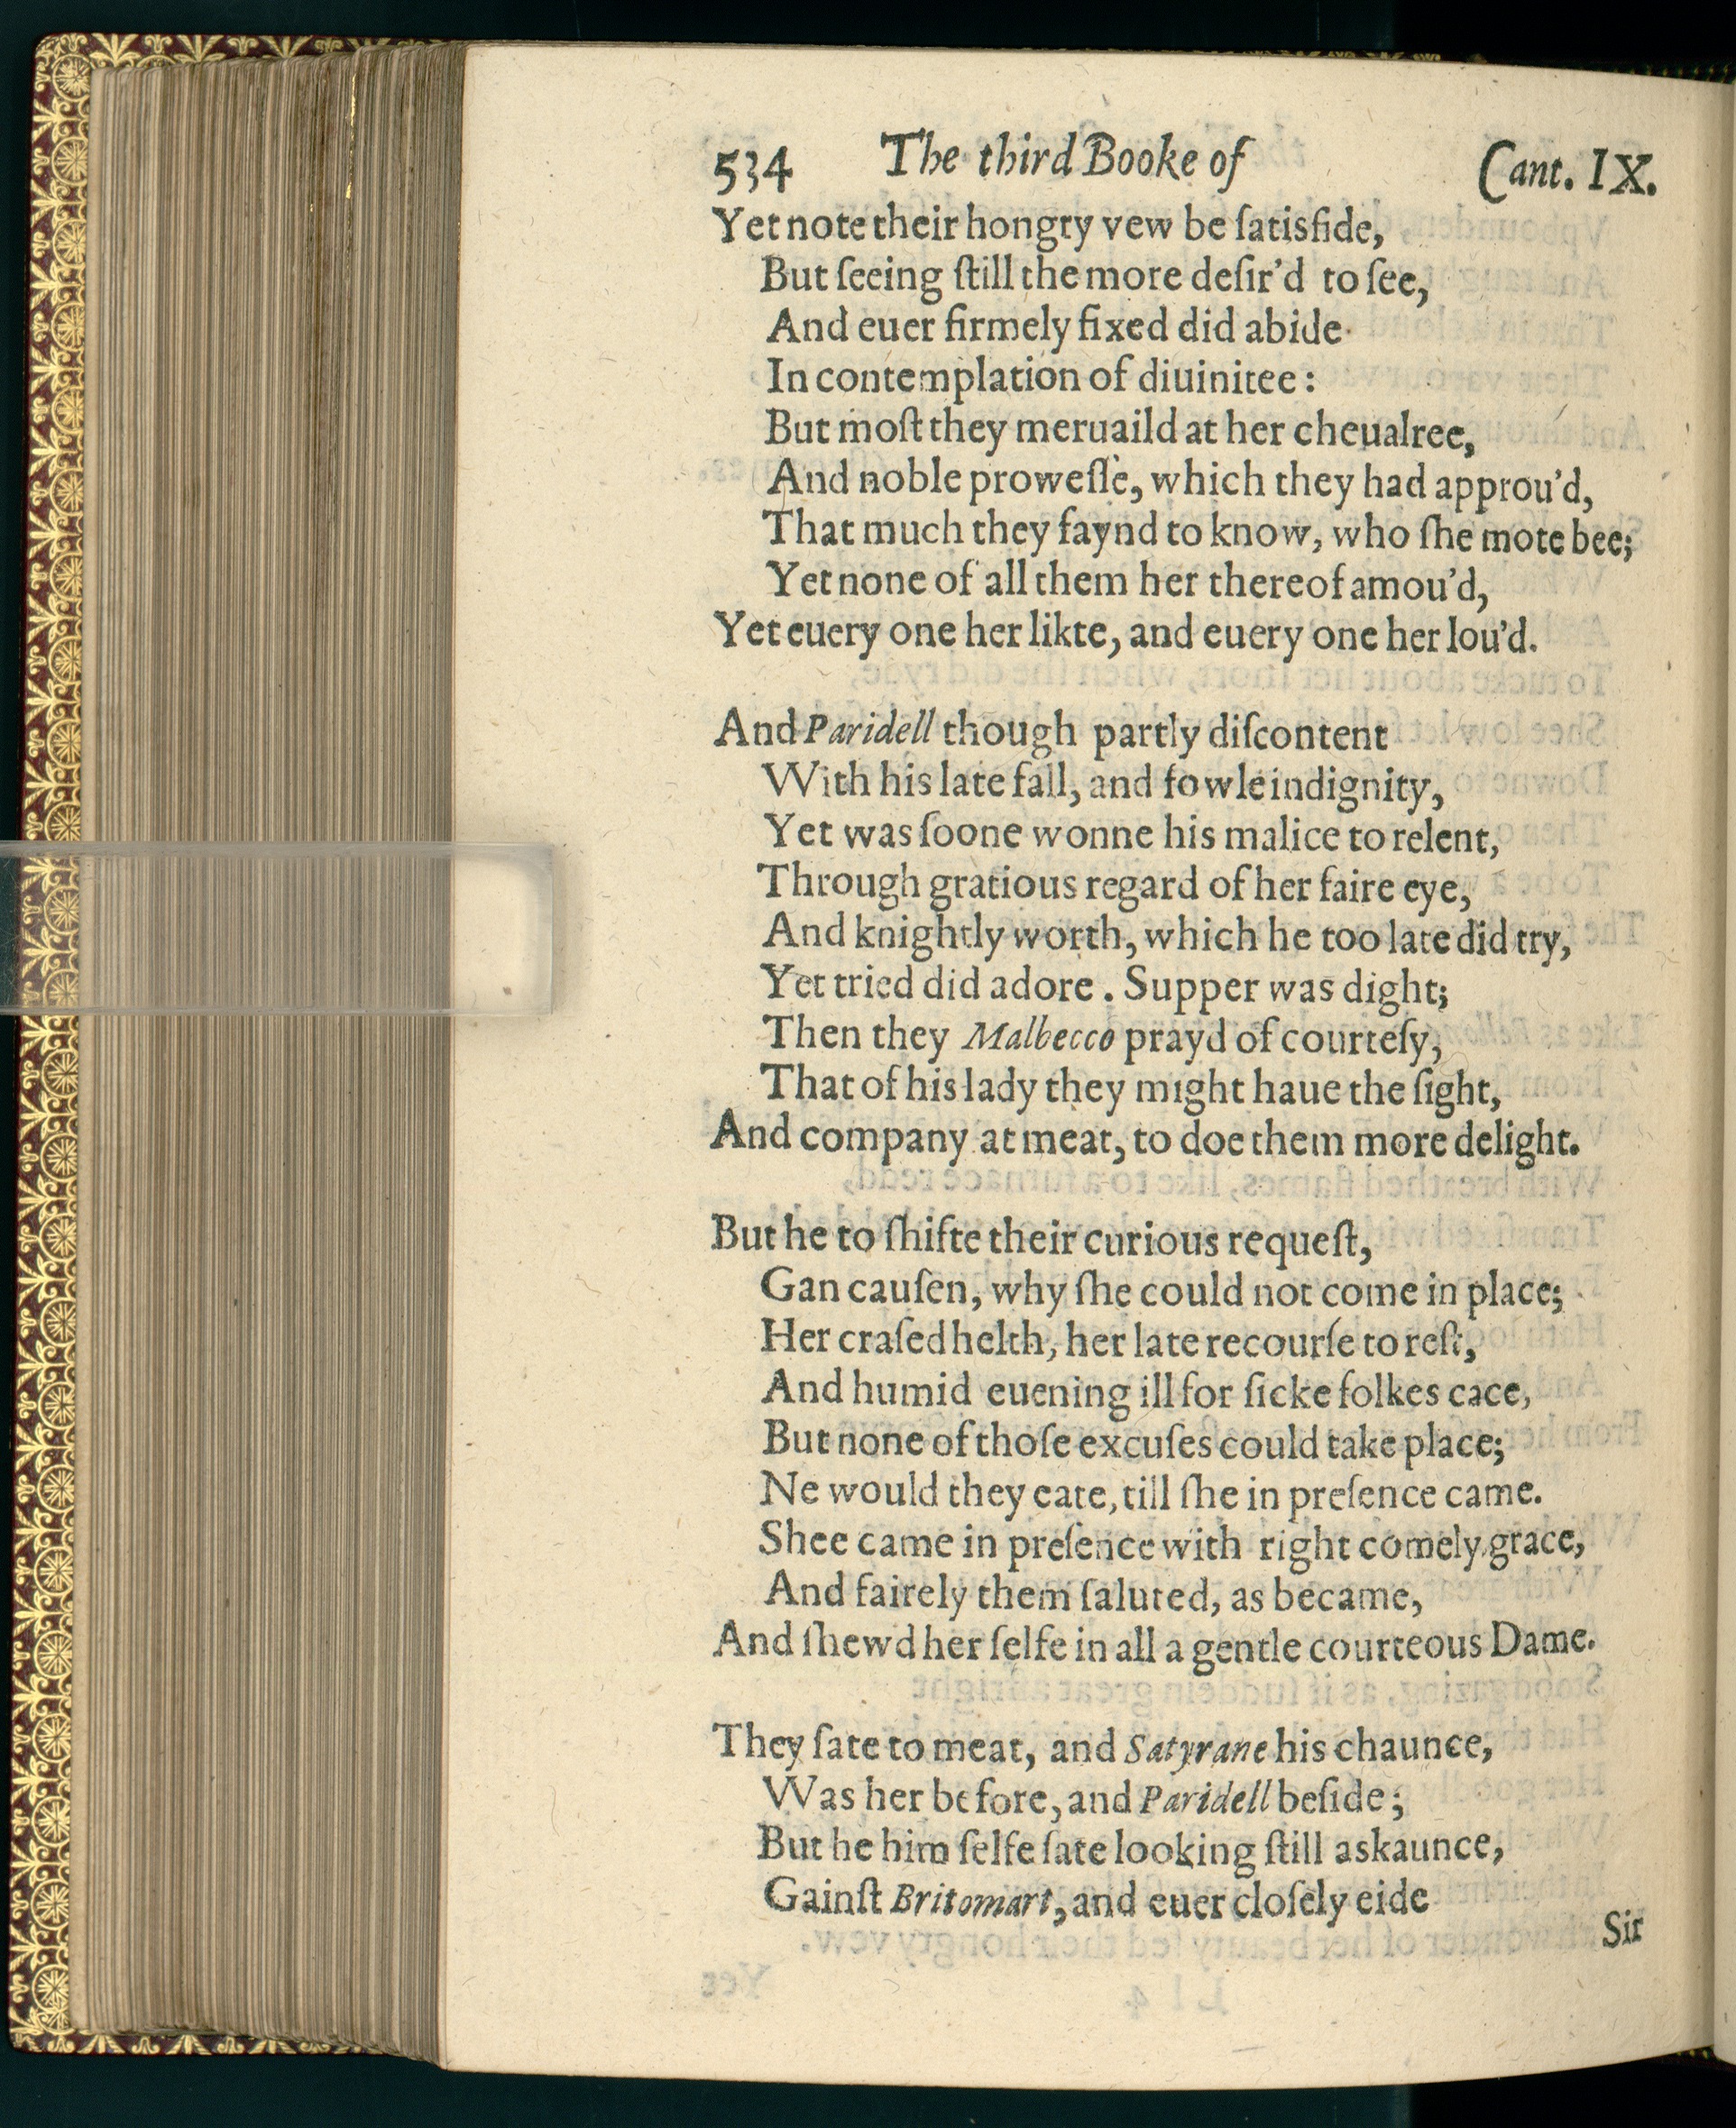 534 The third Booke of Cant. IX.
Yet note their hongry vew be ſatisfide,
But ſeeing ſtill the more deſir'd to ſee,
And euer firmely fixed did abide
In contemplation of diuinitee:
But moſt they meruaild at her cheualree,
And noble proweſſe, which they had approu'd,
That much they faynd to know, who ſhe mote bee;
Yet none of all them her thereof amou'd,
Yet euery one her likte, and euery one her lou'd.
And Paridell though partly diſcontent
With his late fall, and fowle indignity,
Yet was ſoone wonne his malice to relent,
Through gratious regard of her faire eye,
And knightly worth, which he too late did try,
Yet tried did adore. Supper was dight;
Then they Malbecco prayd of courteſy,
That of his lady they might haue the ſight,
And company at meat, to doe them more delight.
But he to ſhifte their curious requeſt,
Gan cauſen, why ſhe could not come in place;
Her craſed helth, her late recourſe to reſt,
And humid euening ill for ſicke folkes cace,
But none of thoſe excuſes could take place;
Ne would they eate, till ſhe in preſence came.
Shee came in preſence with right comely grace,
And fairely them ſaluted, as became,
And ſhewd her ſelfe in all a gentle courteous Dame.
They ſate to meat, and Satyrane his chaunce,
Was her before, and Paridell beſide;
But he him ſelfe ſate looking ſtill askaunce,
Gainſt Britomart, and euer cloſely eide
Sir